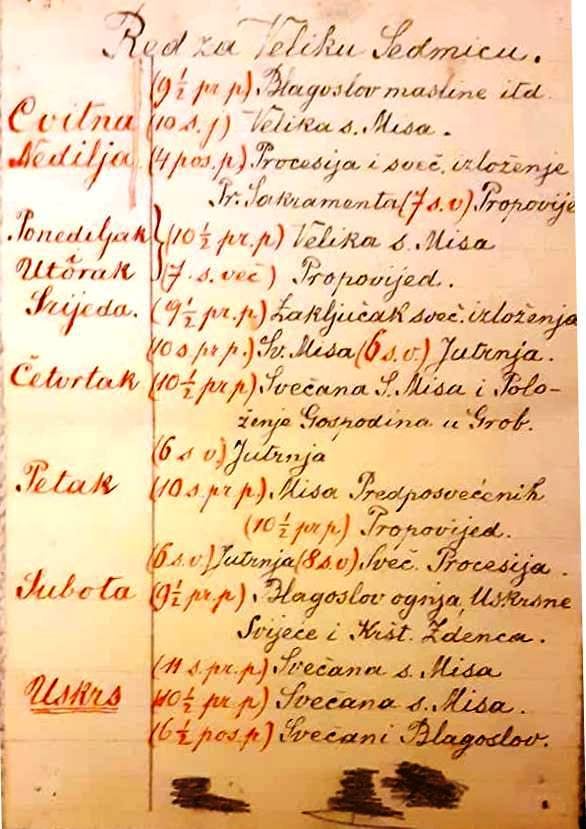 Red za Veliku Sedmicu.
(9½ pr p) Blagoslov masline itd
Cvitna (10 s. j) Velika s. Misa.
Nedilja (4 pos. p) Procesija i sveč. izloženje
Pr. Sakramenta (7 s. v) Propovije
Ponediljak (10½ pr. p) Velika s. Misa
Utorak (7. s. več) Propovijed.
Srijeda. (9½ pr. p.) Zaključak sveč. izloženja
(10 s pr p.) Sv. Misa (6 s. v.) Jutrnja.
Četvrtak (10½ pr p) Svečana S. Misa i Polo-
ženje Gospodina u Grob.
(6 s v.) Jutrnja
Petak (10 s. pr p.) Misa Predposvećenih
(10½ pr p) Propovijed.
(6 s. v) Jutrnja (8 s. v) Sveč. Procesija.
Subota (9½ pr. p) Blagoslov ognja, Uskrsne
Svijeće i Kršt. Zdenca.
(11 s. pr. p) Svečana s. Misa
Uskrs (10½ pr. p) Svečana s. Misa.
(6½ pos. p) Svečani Blagoslov.